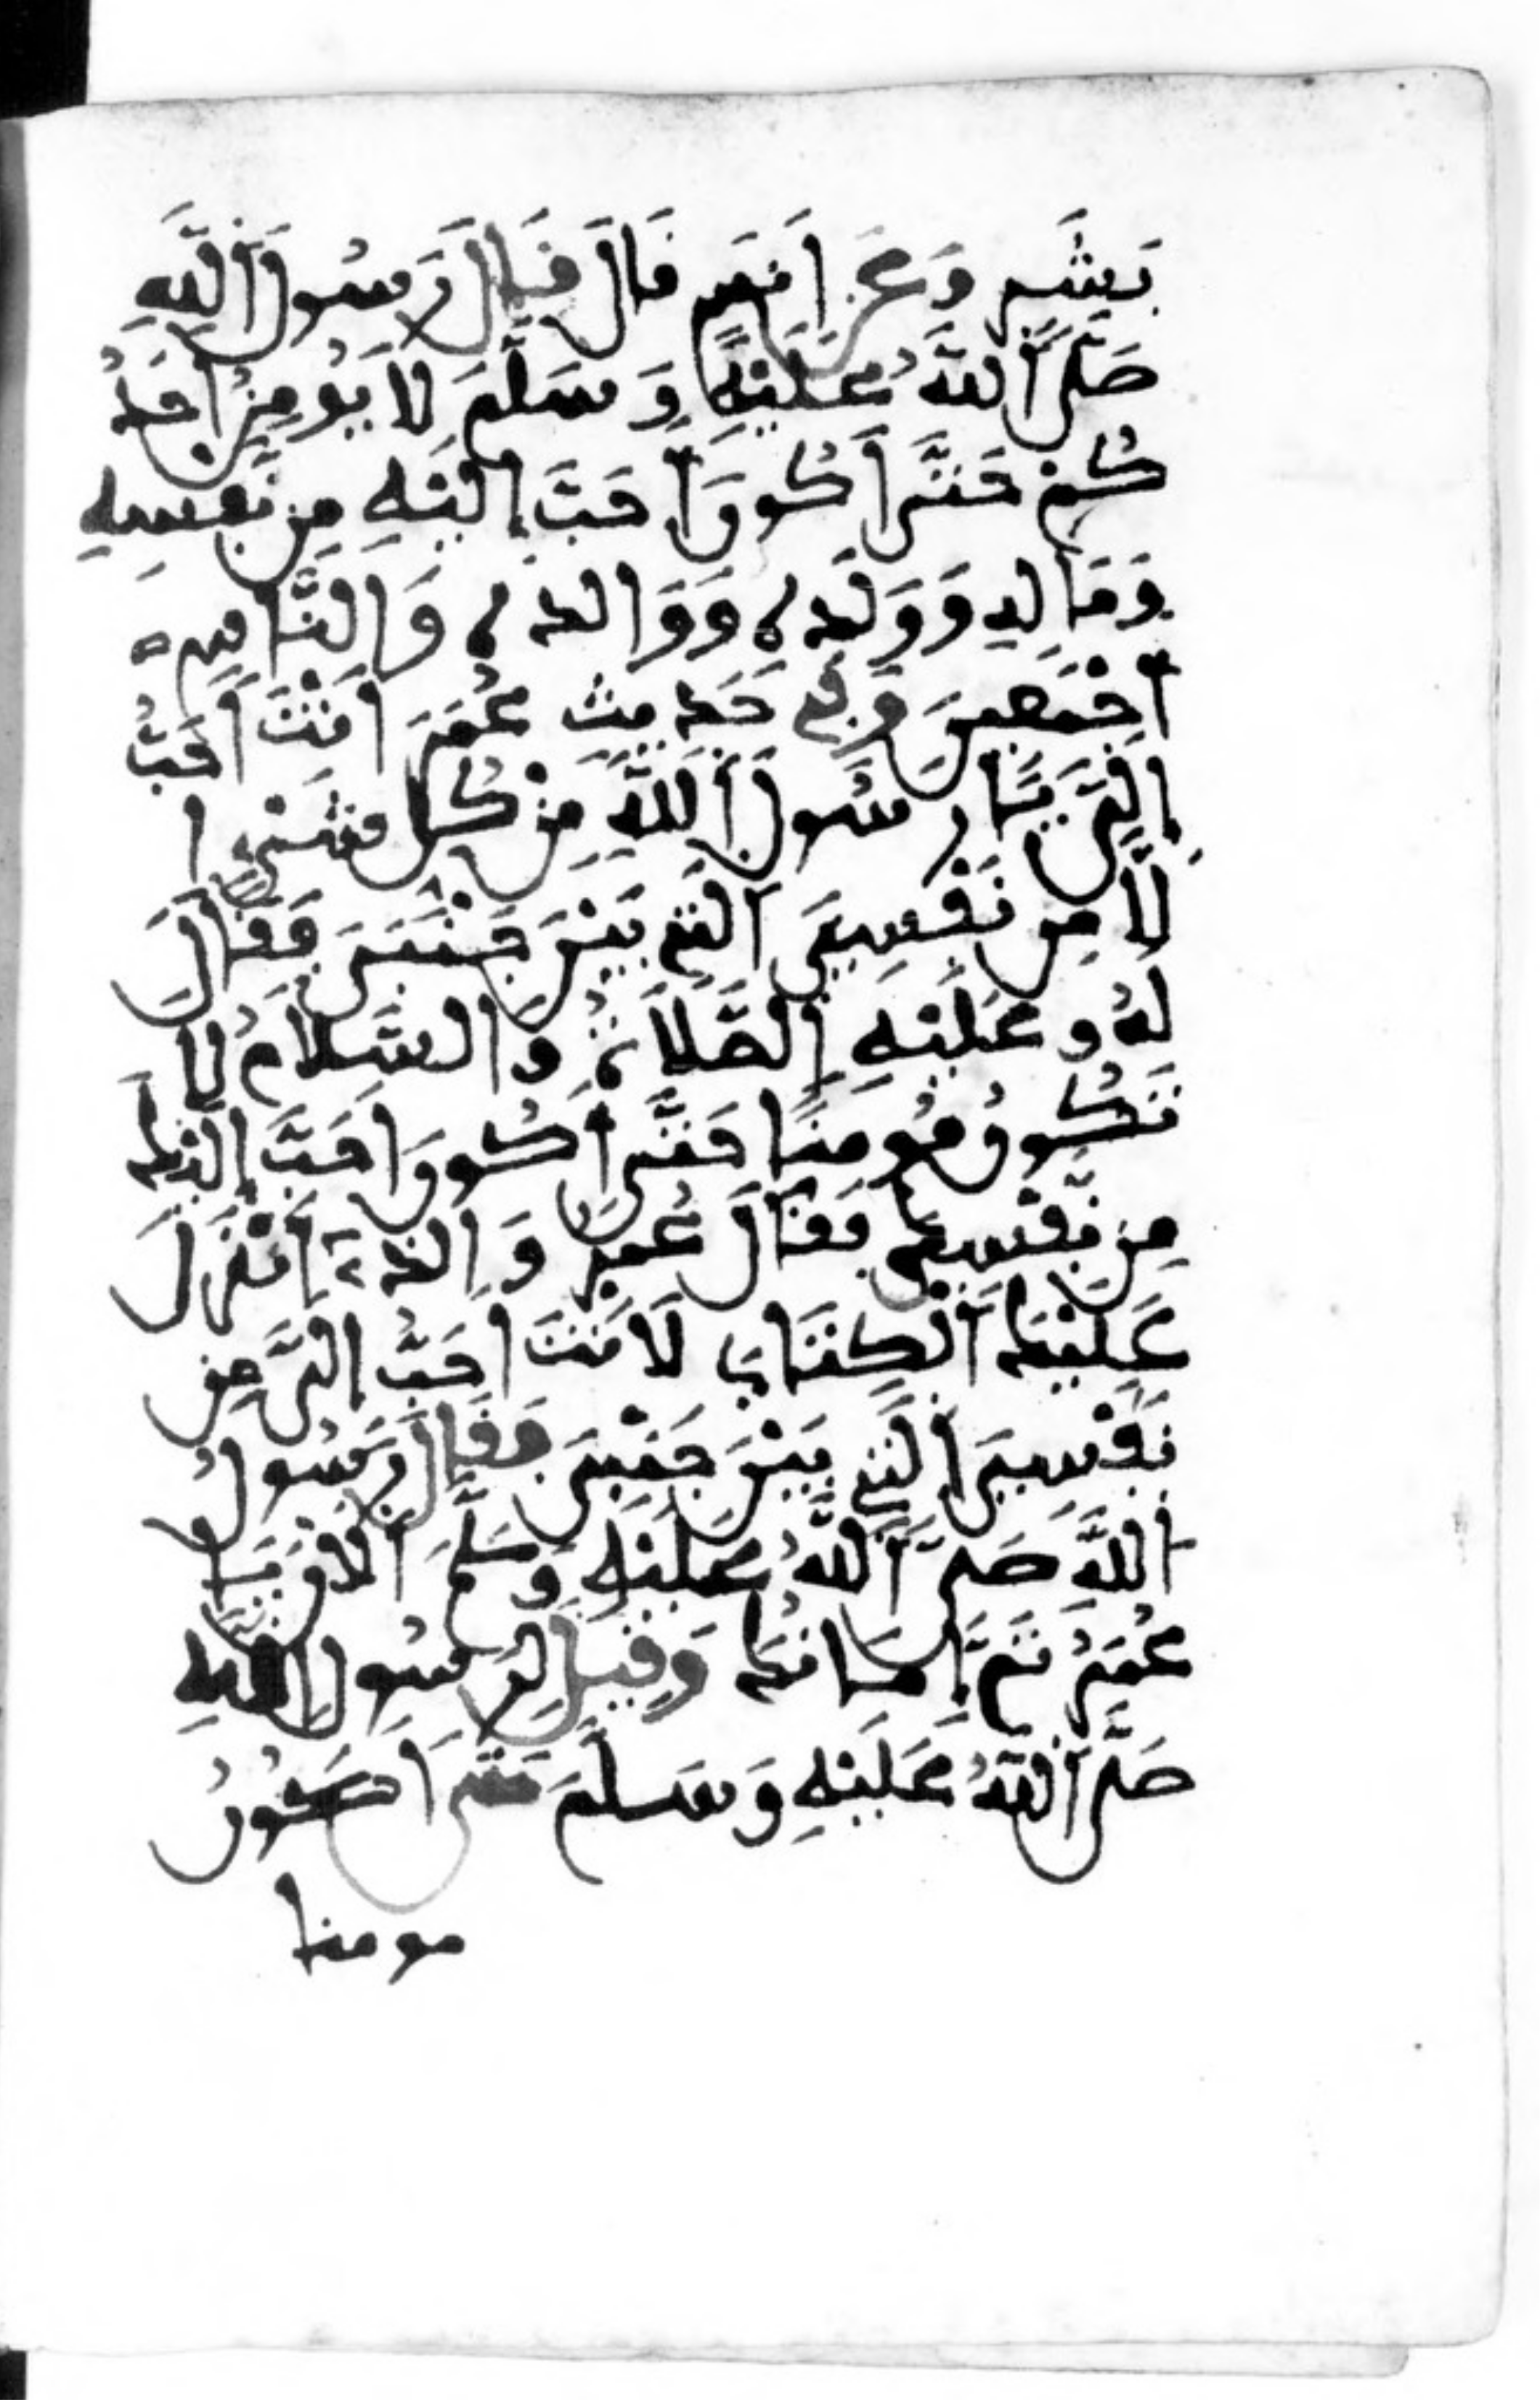 بَشَرٍ وَعَن انس قَالَ قَالَ رَسُولُ اللَّهِ
صَلَّى اللَّهُ عَلَيْهِ وَسَلَّمَ لَا يُومِنُ أَحَدُ
كُمْ حَتَّى أَكُونَ أَحَبَّ إِلَيْهِ مِن نَفْسِهِ
وَمَالِهِ وَوَلَدِهِ وَوَالِدِهِ وَالنَّاسِ
أَجْمَعِينَ وَفِي حَدِيثِ عُمَرَ أَنْتَ أَحَبُّ
إِلَيَّ يَا رَسُولَ اللَّهِ مِنْ كُلِّ شَيْءٍ ا
لَّا مِن نَفْسِيَ الَّتِي بَيْنَ جَنْبَيَّ فَقَالَ
لَهُ عَلَيْهِ الصَّلَاةُ وَالسَّلَامُ لَا
تَكُونُ مُومِنًا حَتَّى أَكُونَ أَحَبَّ إِلَيْكَ
مِن نَفْسِكَ فَقَالَ عُمَرُ وَالَّذِي أَنْزَلَ
عَلَيْكَ الْكِتَابَ لَأَنْتَ أَحَبُّ إِلَيَّ مِن
نَفْسِيَ الَّتِي بَيْنَ جَنْبَيَّ فَقَالَ رَسُولُ
اللَّهِ صَلَّى اللَّهُ عَلَيْهِ وَسَلَّمَ الْآنَ يَا
عُمَرُ تَمَّ إِيمَانُكَ وَقِيلَ لِرَسُولِ اللَّهِ
صَلَّى اللَّهُ عَلَيْهِ وَسَلَّمَ مَتَى أَكُونُ
مومنا